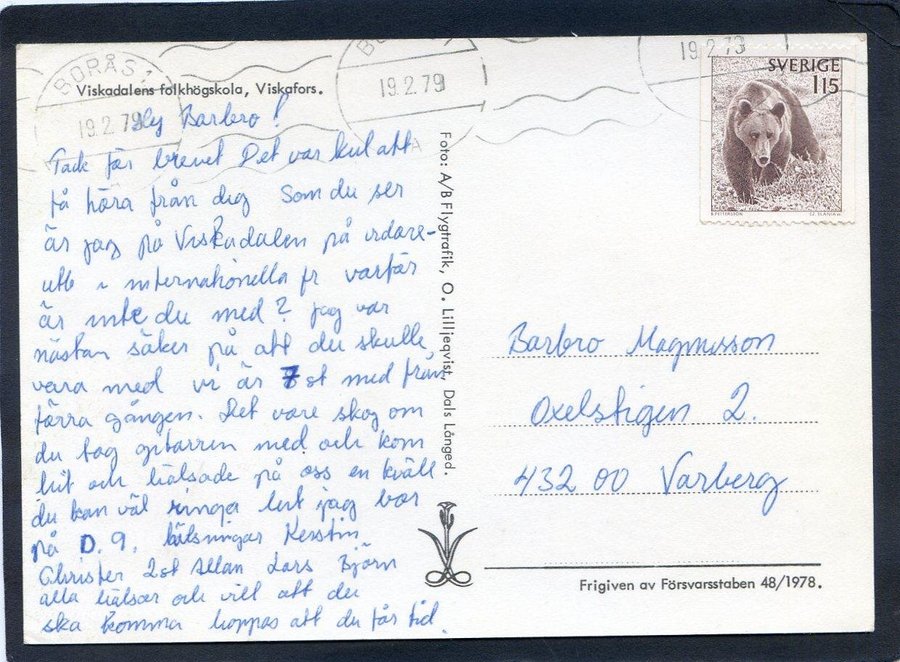 BORÅS 1
19.2.79
19.2.79
19.2.79
SVERIGE
1 15
Viskadalens folkhögskola, Viskafors.
Hej Barbro!
Tack för brevet Det var kul att
få höra från dig Som du ser
är jag på Viskadalen på vidare-
utb i internationella fr varför
är inte du med? jag var
nästan säker på att du skulle
vara med vi är 7 st med från
förra gången. Det vore skoj om
du tog gitarren med och kom
hit och hälsade på oss en kväll
du kan väl ringa hit jag bor
på D.9. hälsningar Kerstin
Christer 2st Allan Lars Björn
alla hälsar och vill att du
ska komma hoppas att du får tid.
Foto: A/B Flygtrafik, O. Lilljeqvist, Dals Långed.
Barbro Magnusson
Oxelstigen 2.
432 00 Varberg
Frigiven av Försvarsstaben 48/1978.